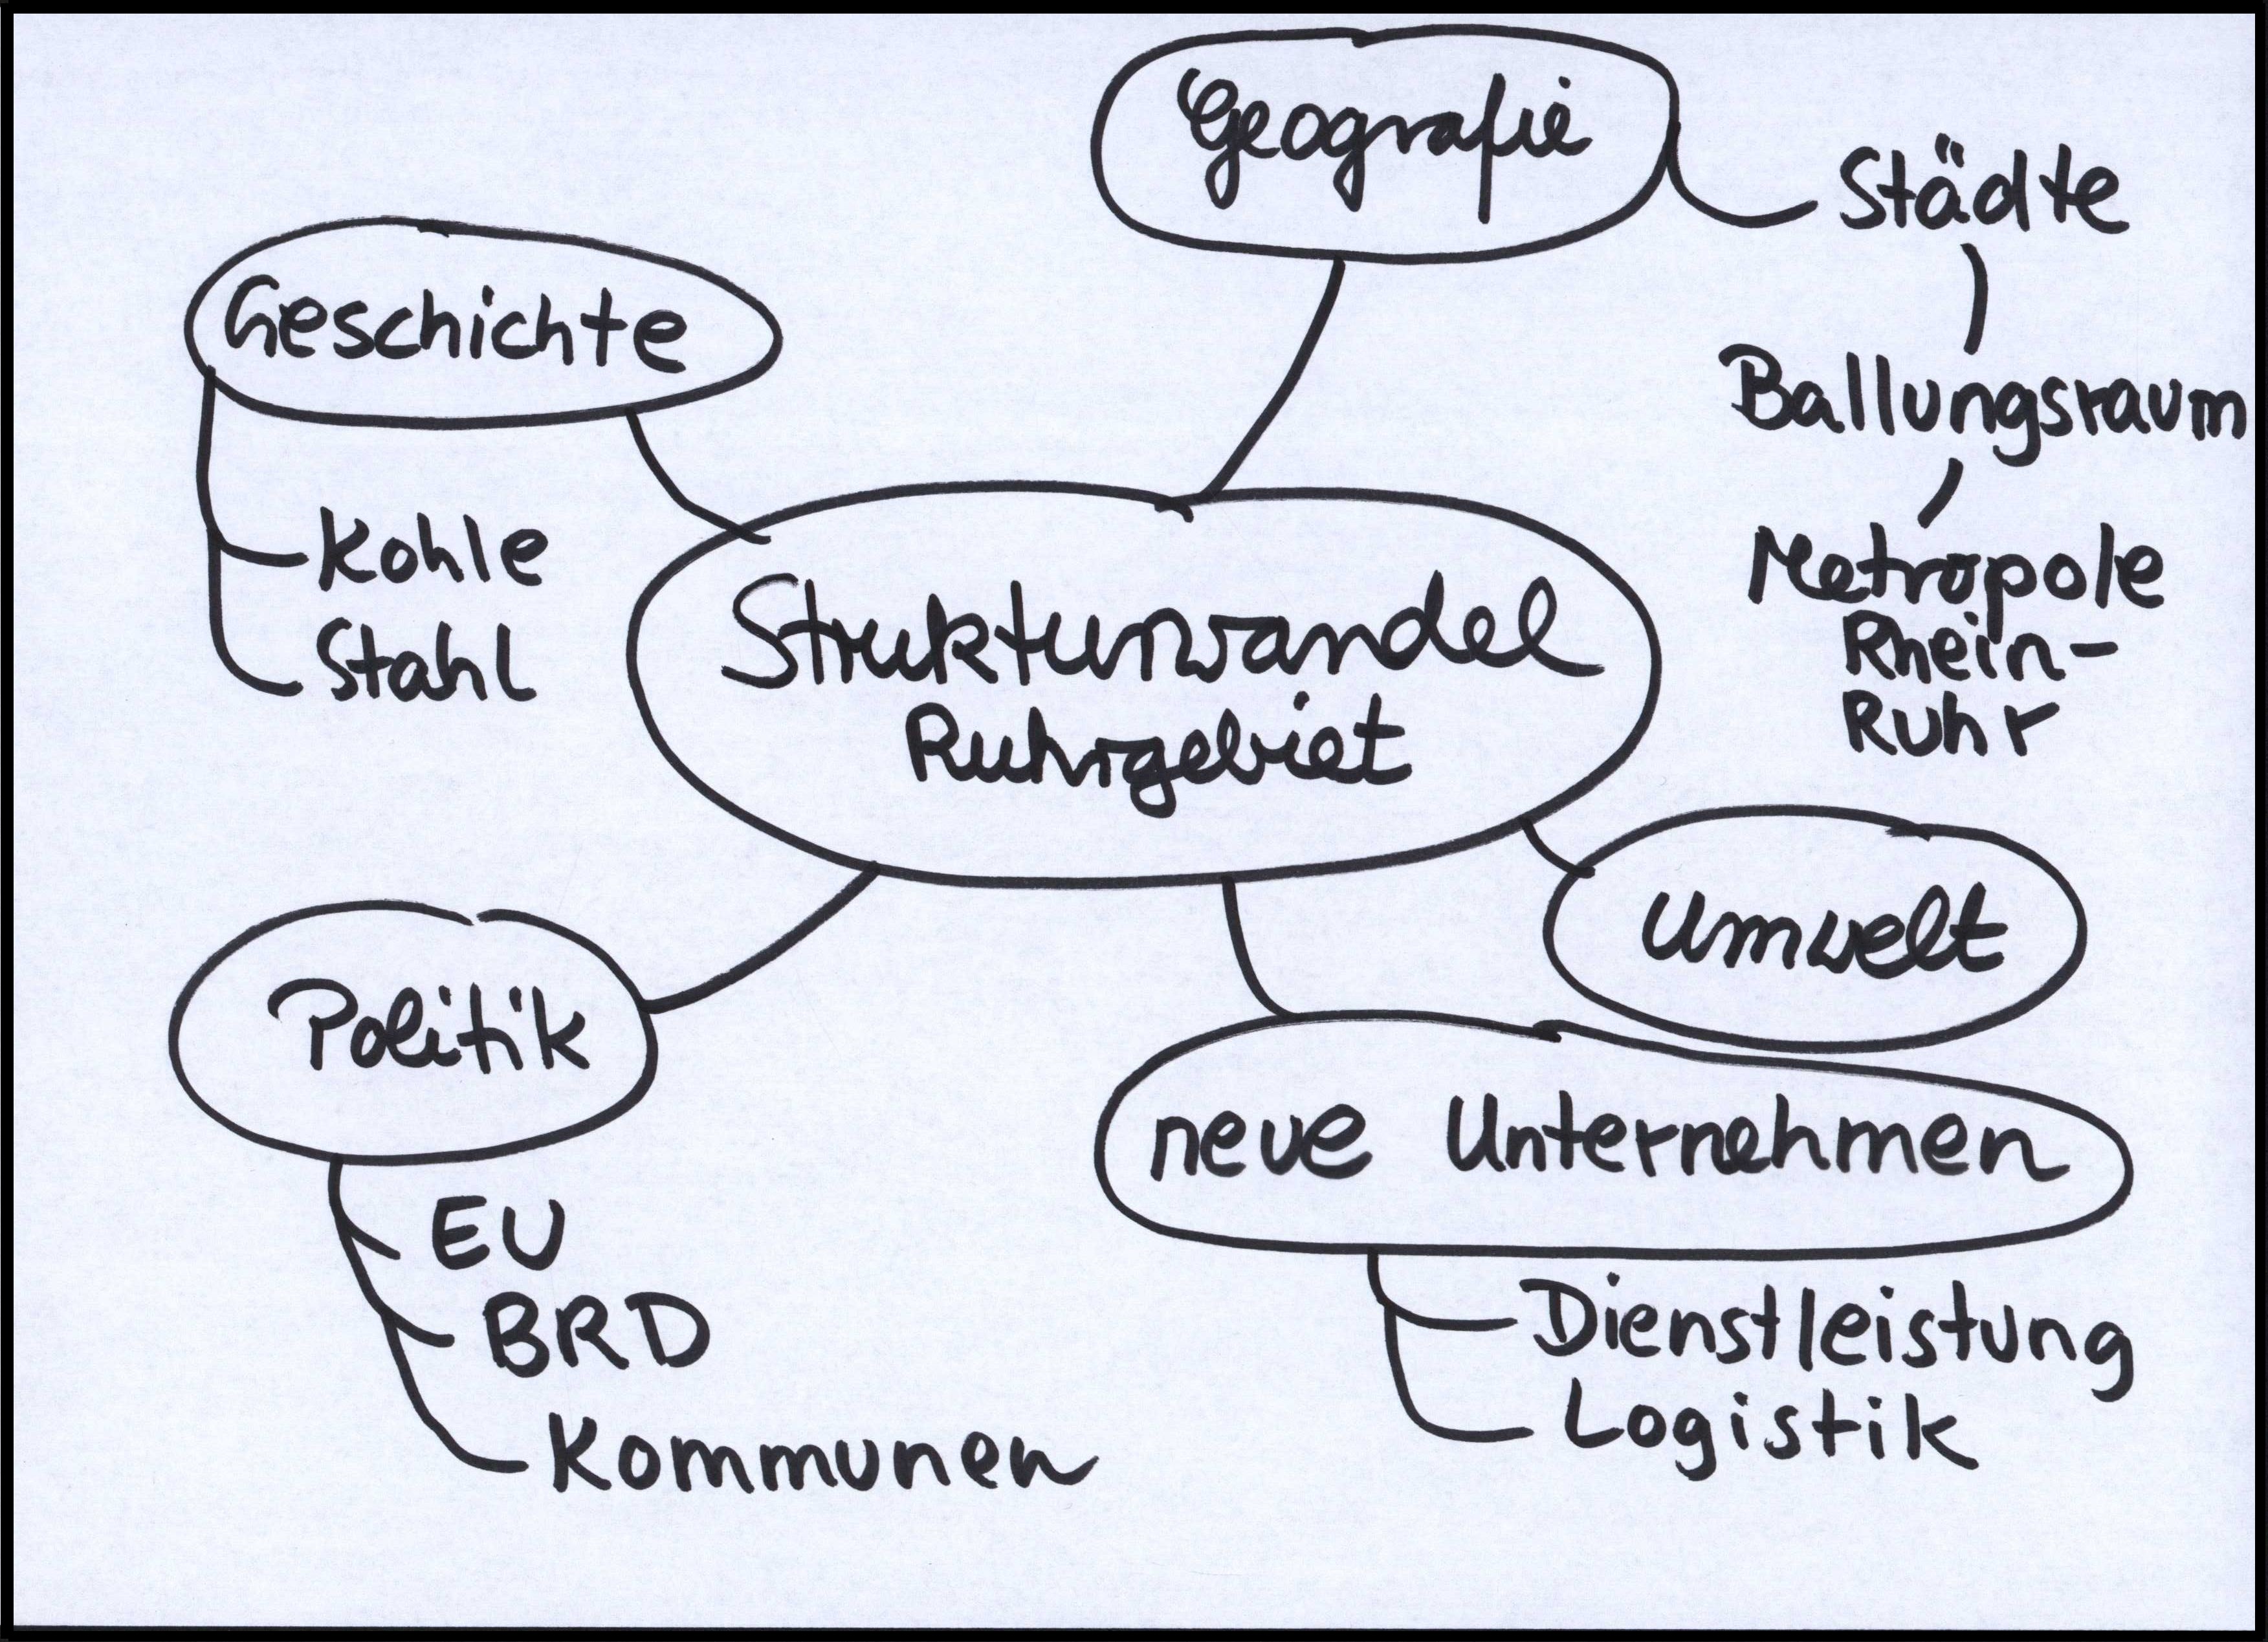 Geografie
Städte
Ballungsraum
Metropole
Rhein-
Ruhr
Geschichte
Kohle
Stahl
Strukturwandel
Ruhrgebiet
Umwelt
Politik
EU
BRD
Kommunen
neue Unternehmen
Dienstleistung
Logistik